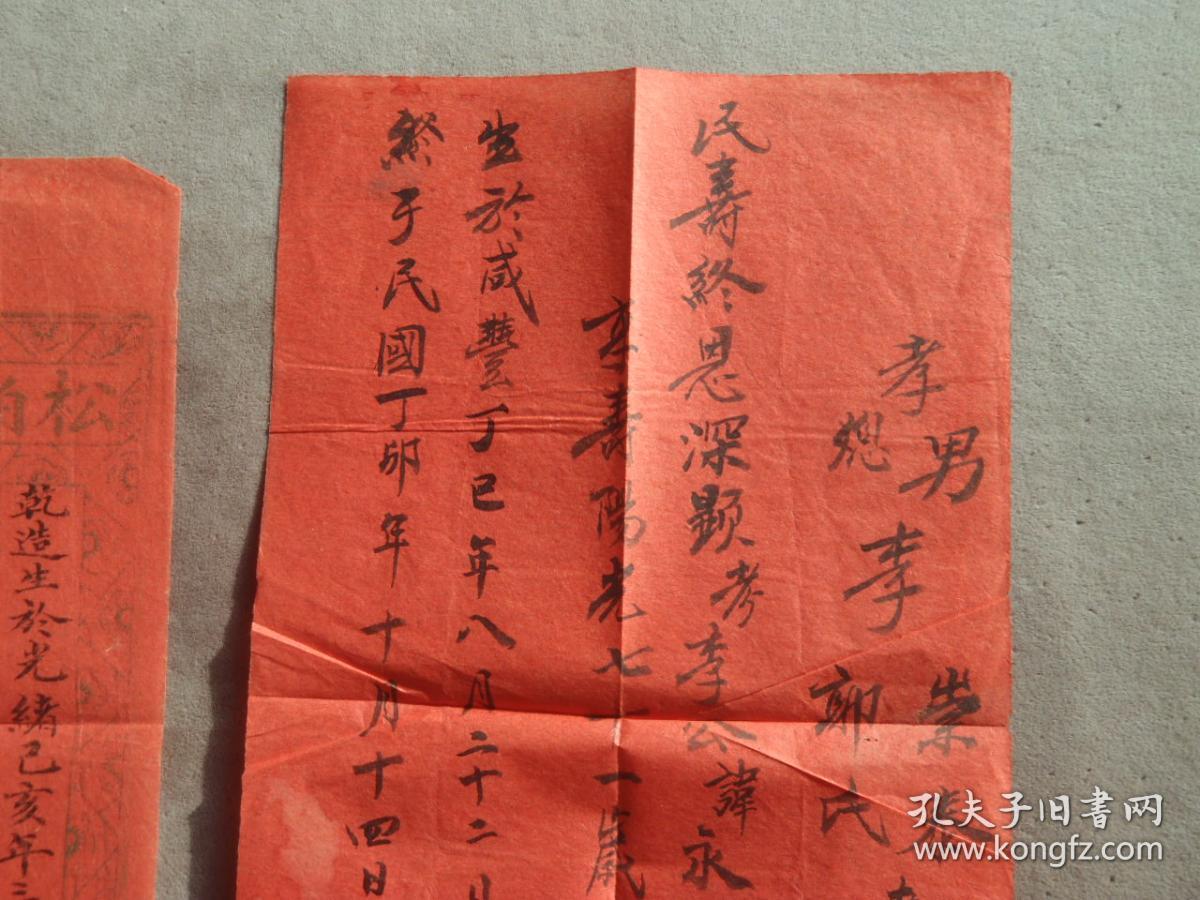 孝男李崇
媳郭氏
民壽終恩深顯考李公諱永
享壽陽光七十一歲
生於咸豐丁巳年八月二十二日
終于民國丁卯年十月十四日
松
乾造生於光緒己亥年三
孔夫子旧书网
www.kongfz.com